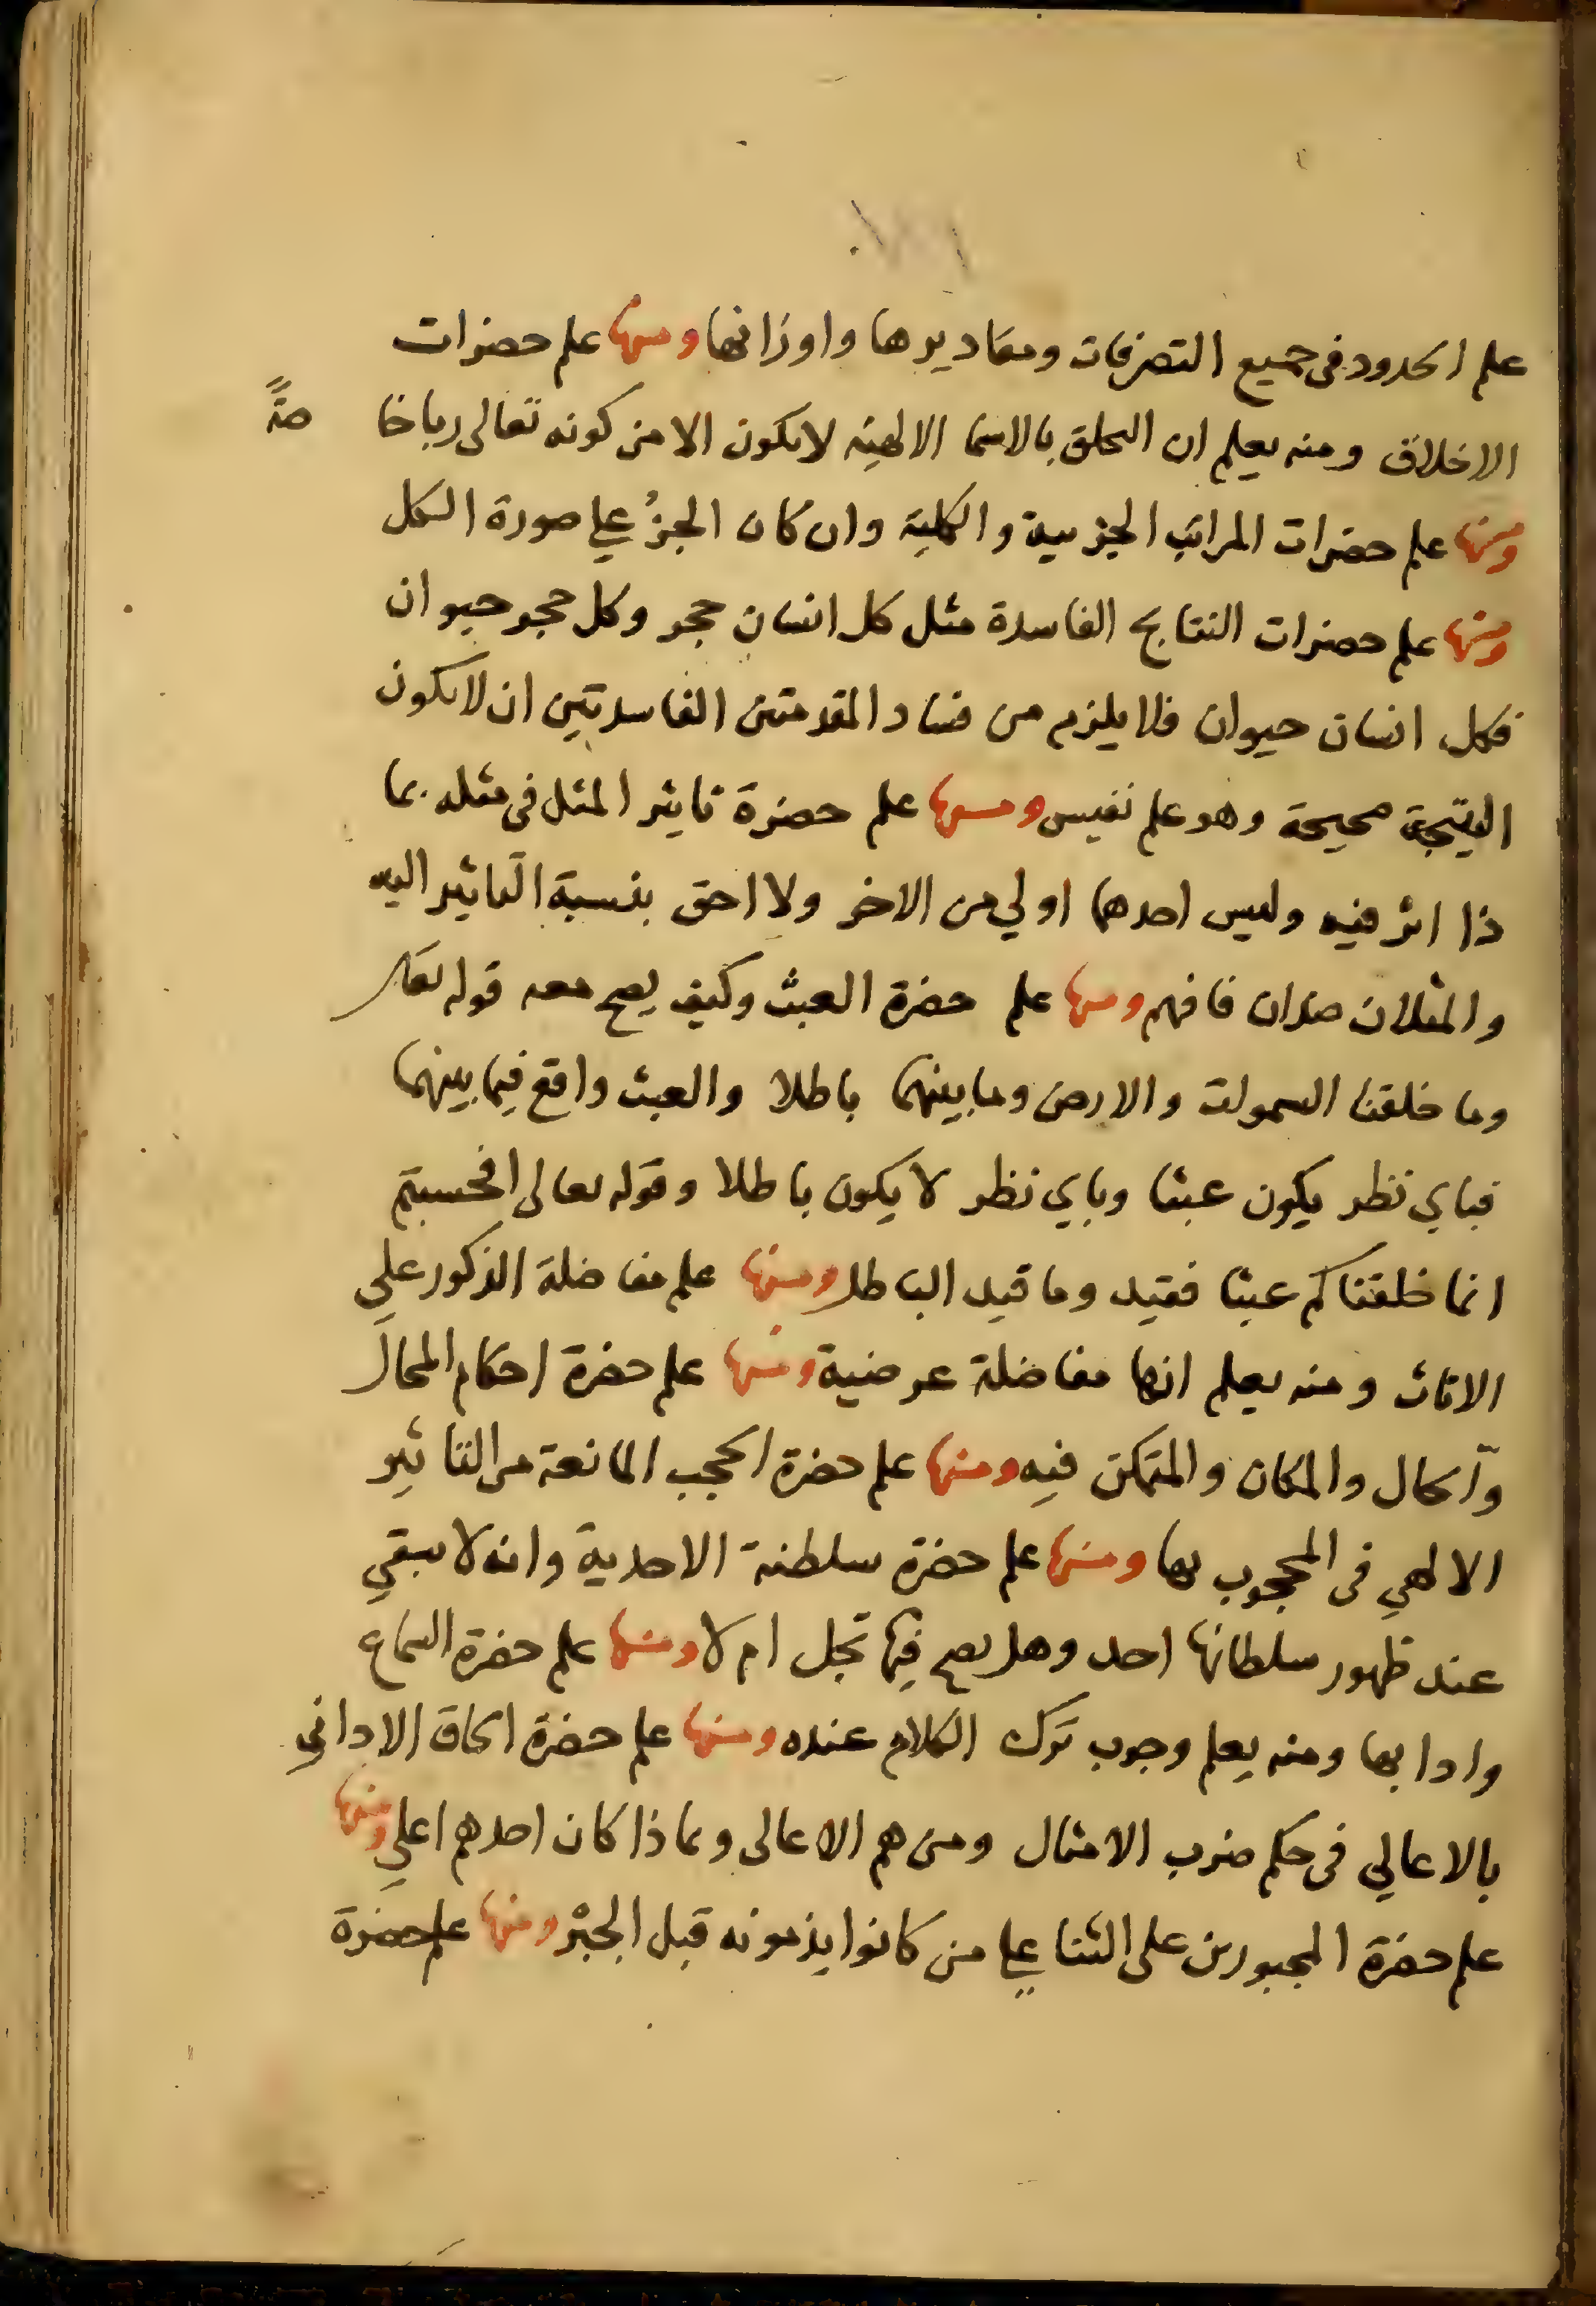 علم الحدود في جميع التصرفات ومقاديرها واوزانها ومنها علم حضرات
الاخلاق ومنه يعلم ان التخلق بالاسما الالهية لا يكون الا من كونه تعالى ربا خا صة
ومنها علم حضرات المراتب الجزيية والكلية وان كان الجزء على صورة الكل
ومنها علم حضرات النتايج الفاسدة مثل كل انسان حجر وكل حجر حيوان
فكل انسان حيوان فلا يلزم من فساد المقدمتين الفاسدتين ان لا تكون
النتيجة صحيحة وهو علم نفيس ومنها علم حضرة تاثير المثل في مثله بما
ذا اثر فيه وليس احدهما اولي من الاخر ولا احق بنسبة التاثير اليه
والمثلان ضدان فافهم ومنها علم حضرة العبث وكيف يصح معه قوله تعالى
وما خلقنا السموات والارض وما بينهما باطلا والعبث واقع فيما بينهما
فباي نظر يكون عبثا وباي نظر لا يكون باطلا وقوله تعالى افحسبتم
انما خلقناكم عبثا فقيد وما قيد الباطل ومنها علم مفاضلة الذكور علي
الاناث ومنه يعلم انها مفاضلة عرضية ومنها علم حضرة احكام المحال
والحال والمكان والمتمكن فيه ومنها علم حضرة الحجب المانعة من التاثير
الالهي في المحجوب بها ومنها علم حضرة سلطنة الاحدية وانه لا يبقي
عند ظهور سلطانها احد وهل يصح فيها تجل ام لا ومنها علم حضرة السماع
وادابها ومنه يعلم وجوب ترك الكلام عنده ومنها علم حضرة الحاق الاداني
بالاعالي في حكم ضرب الامثال ومن هم الاعالى وبماذا كان احدهم اعلي ومنها
علم حضرة المجبورين على الثنا علي من كانوا يذمونه قبل الجبر ومنها علم حضرة